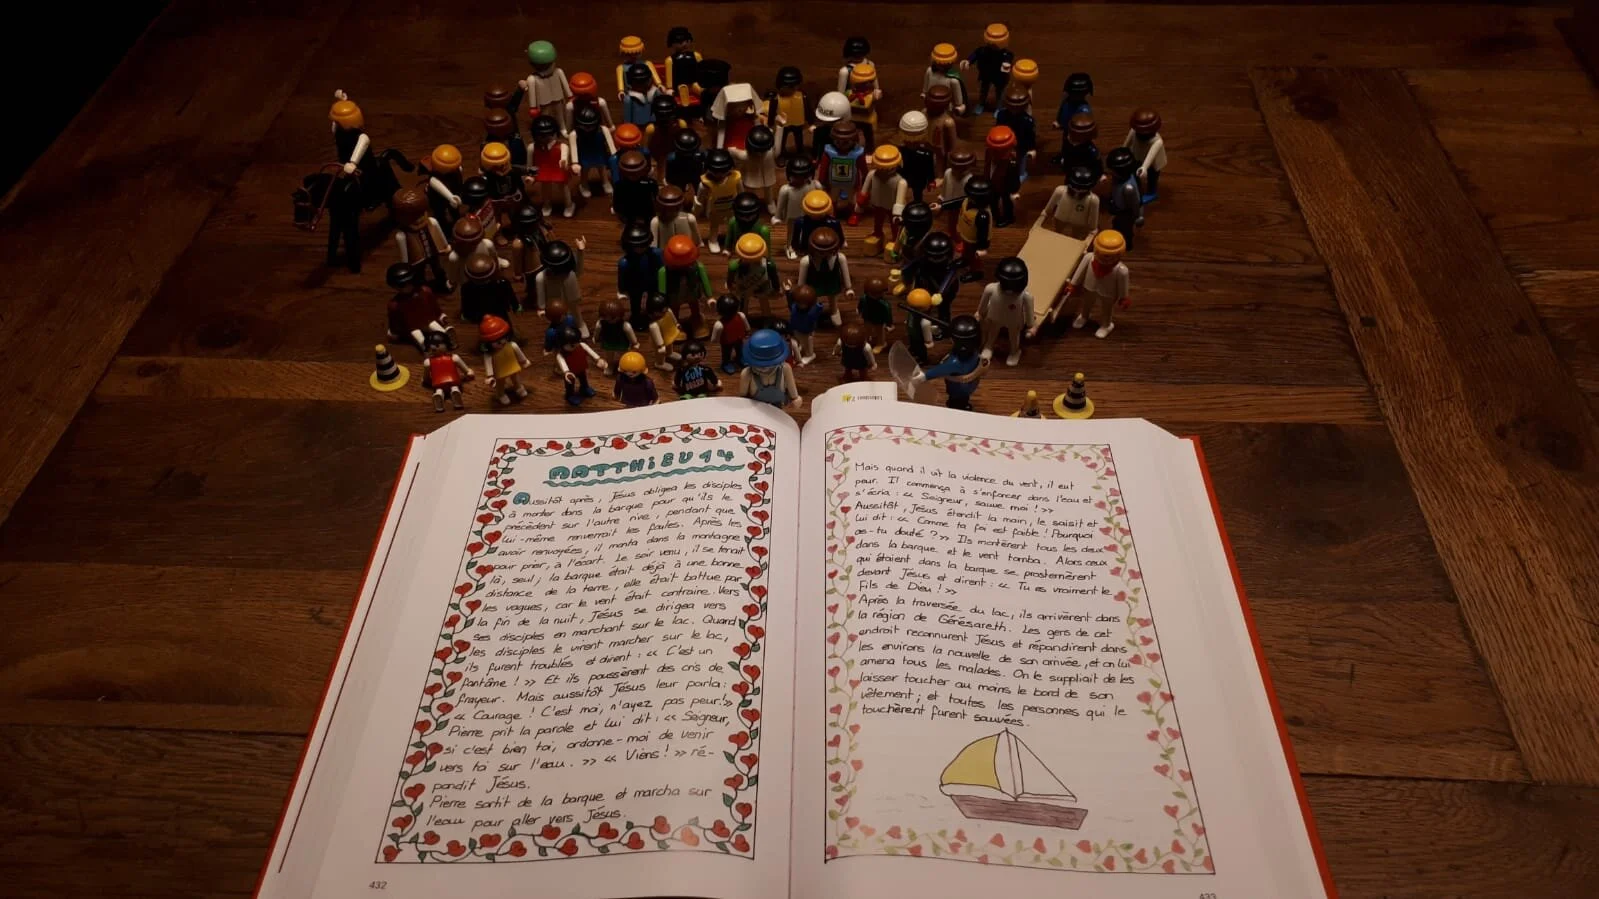 POLICE
FUN
MATTHIEU 14
Aussitôt après, Jésus obligea les disciples
à monter dans la barque pour qu'ils le
précèdent sur l'autre rive, pendant que
lui-même renverrait les foules. Après les
avoir renvoyées, il monta dans la montagne
pour prier, à l'écart. Le soir venu, il se tenait
là, seul ; la barque était déjà à une bonne
distance de la terre, elle était battue par
les vagues, car le vent était contraire. Vers
la fin de la nuit, Jésus se dirigea vers
ses disciples en marchant sur le lac. Quand
les disciples le virent marcher sur le lac,
ils furent troublés et dirent : << C'est un
fantôme ! >> Et ils poussèrent des cris de
frayeur. Mais aussitôt Jésus leur parla :
<< Courage ! C'est moi, n'ayez pas peur! >>
Pierre prit la parole et lui dit : << Seigneur,
si c'est bien toi, ordonne-moi de venir
vers toi sur l'eau. >> << Viens ! >> ré-
pondit Jésus.
Pierre sortit de la barque et marcha sur
l'eau pour aller vers Jésus.
432
Mais quand il vit la violence du vent, il eut
peur. Il commença à s'enfoncer dans l'eau et
s'écria : << Seigneur, sauve moi ! >>
Aussitôt, Jésus étendit la main, le saisit et
lui dit : << Comme ta foi est faible ! Pourquoi
as-tu douté ? >> Ils montèrent tous les deux
dans la barque et le vent tomba. Alors ceux
qui étaient dans la barque se prosternèrent
devant Jésus et dirent : << Tu es vraiment le
Fils de Dieu ! >>
Après la traversée du lac, ils arrivèrent dans
la région de Génésareth. Les gens de cet
endroit reconnurent Jésus et répandirent dans
les environs la nouvelle de son arrivée, et on lui
amena tous les malades. On le suppliait de les
laisser toucher au moins le bord de son
vêtement ; et toutes les personnes qui le
touchèrent furent sauvées.
433